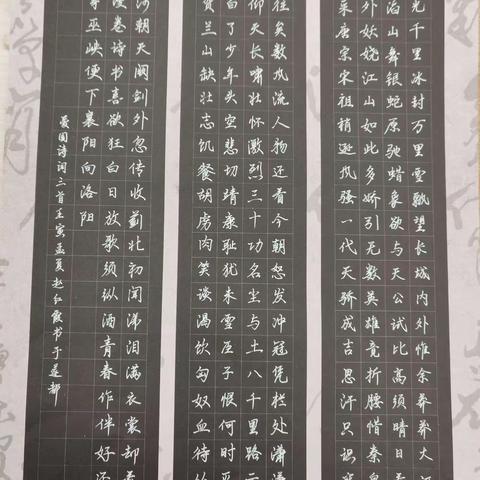 光千里冰封万里雪飘望长城内外惟余莽莽大河
滔山舞银蛇原驰蜡象欲与天公试比高须晴日看
外妖娆江山如此多娇引无数英雄竞折腰惜秦皇
来唐宗宋祖稍逊风骚一代天骄成吉思汗只识弯
往矣数风流人物还看今朝怒发冲冠凭栏处潇潇
仰天长啸壮怀激烈三十功名尘与土八千里路云
白了少年头空悲切靖康耻犹未雪臣子恨何时灭
贺兰山缺壮志饥餐胡虏肉笑谈渴饮匈奴血待从
河朝天阙剑外忽传收蓟北初闻涕泪满衣裳却看
漫卷诗书喜欲狂白日放歌须纵酒青春作伴好还
穿巫峡便下襄阳向洛阳
爱国诗词三首壬寅孟夏赵红霞书于莲都